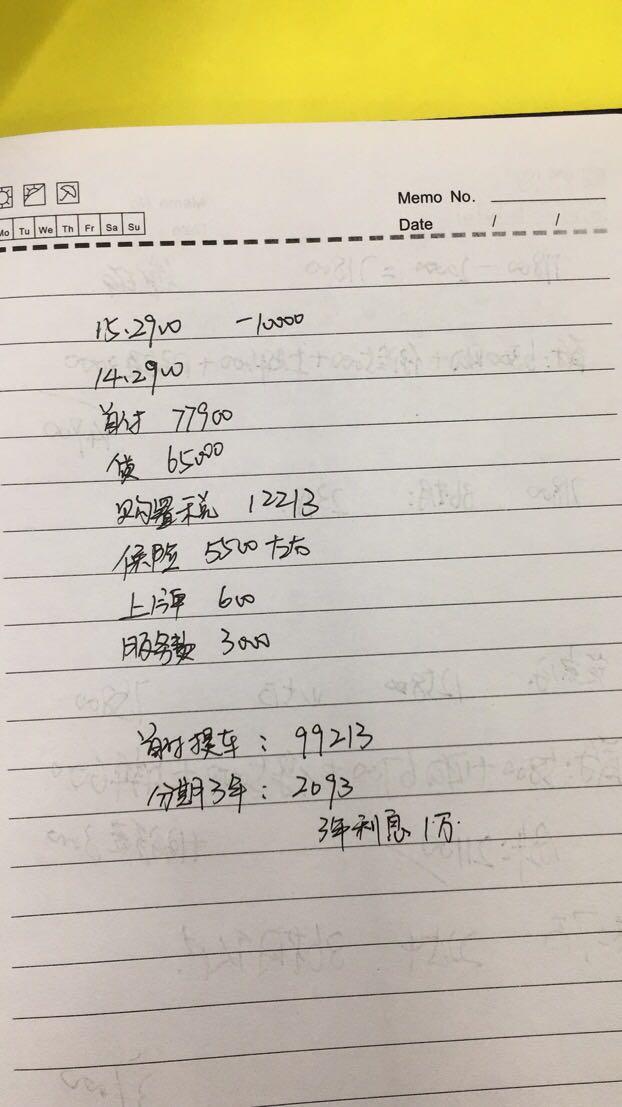 Memo No.
Mo Tu We Th Fr Sa Su
Date / /
15.2900 -10000
14.2900
首付 77900
贷 65000
购置税 12213
保险 5500左右
上户 600
服务费 3000
首付提车: 99213
分期3年: 2093
3年利息1万.